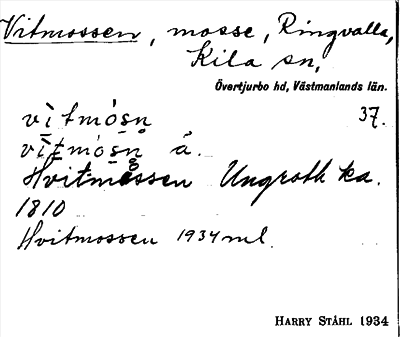 Vitmossen, mosse, Ringvalla,
Kila sn,
Övertjurbo hd, Västmanlands län.
vìtmósn 37.
vìtmósn å.
Hvitmossen Ungroth ka.
1810
Hvitmossen 1934 ml.
HARRY STÅHL 1934